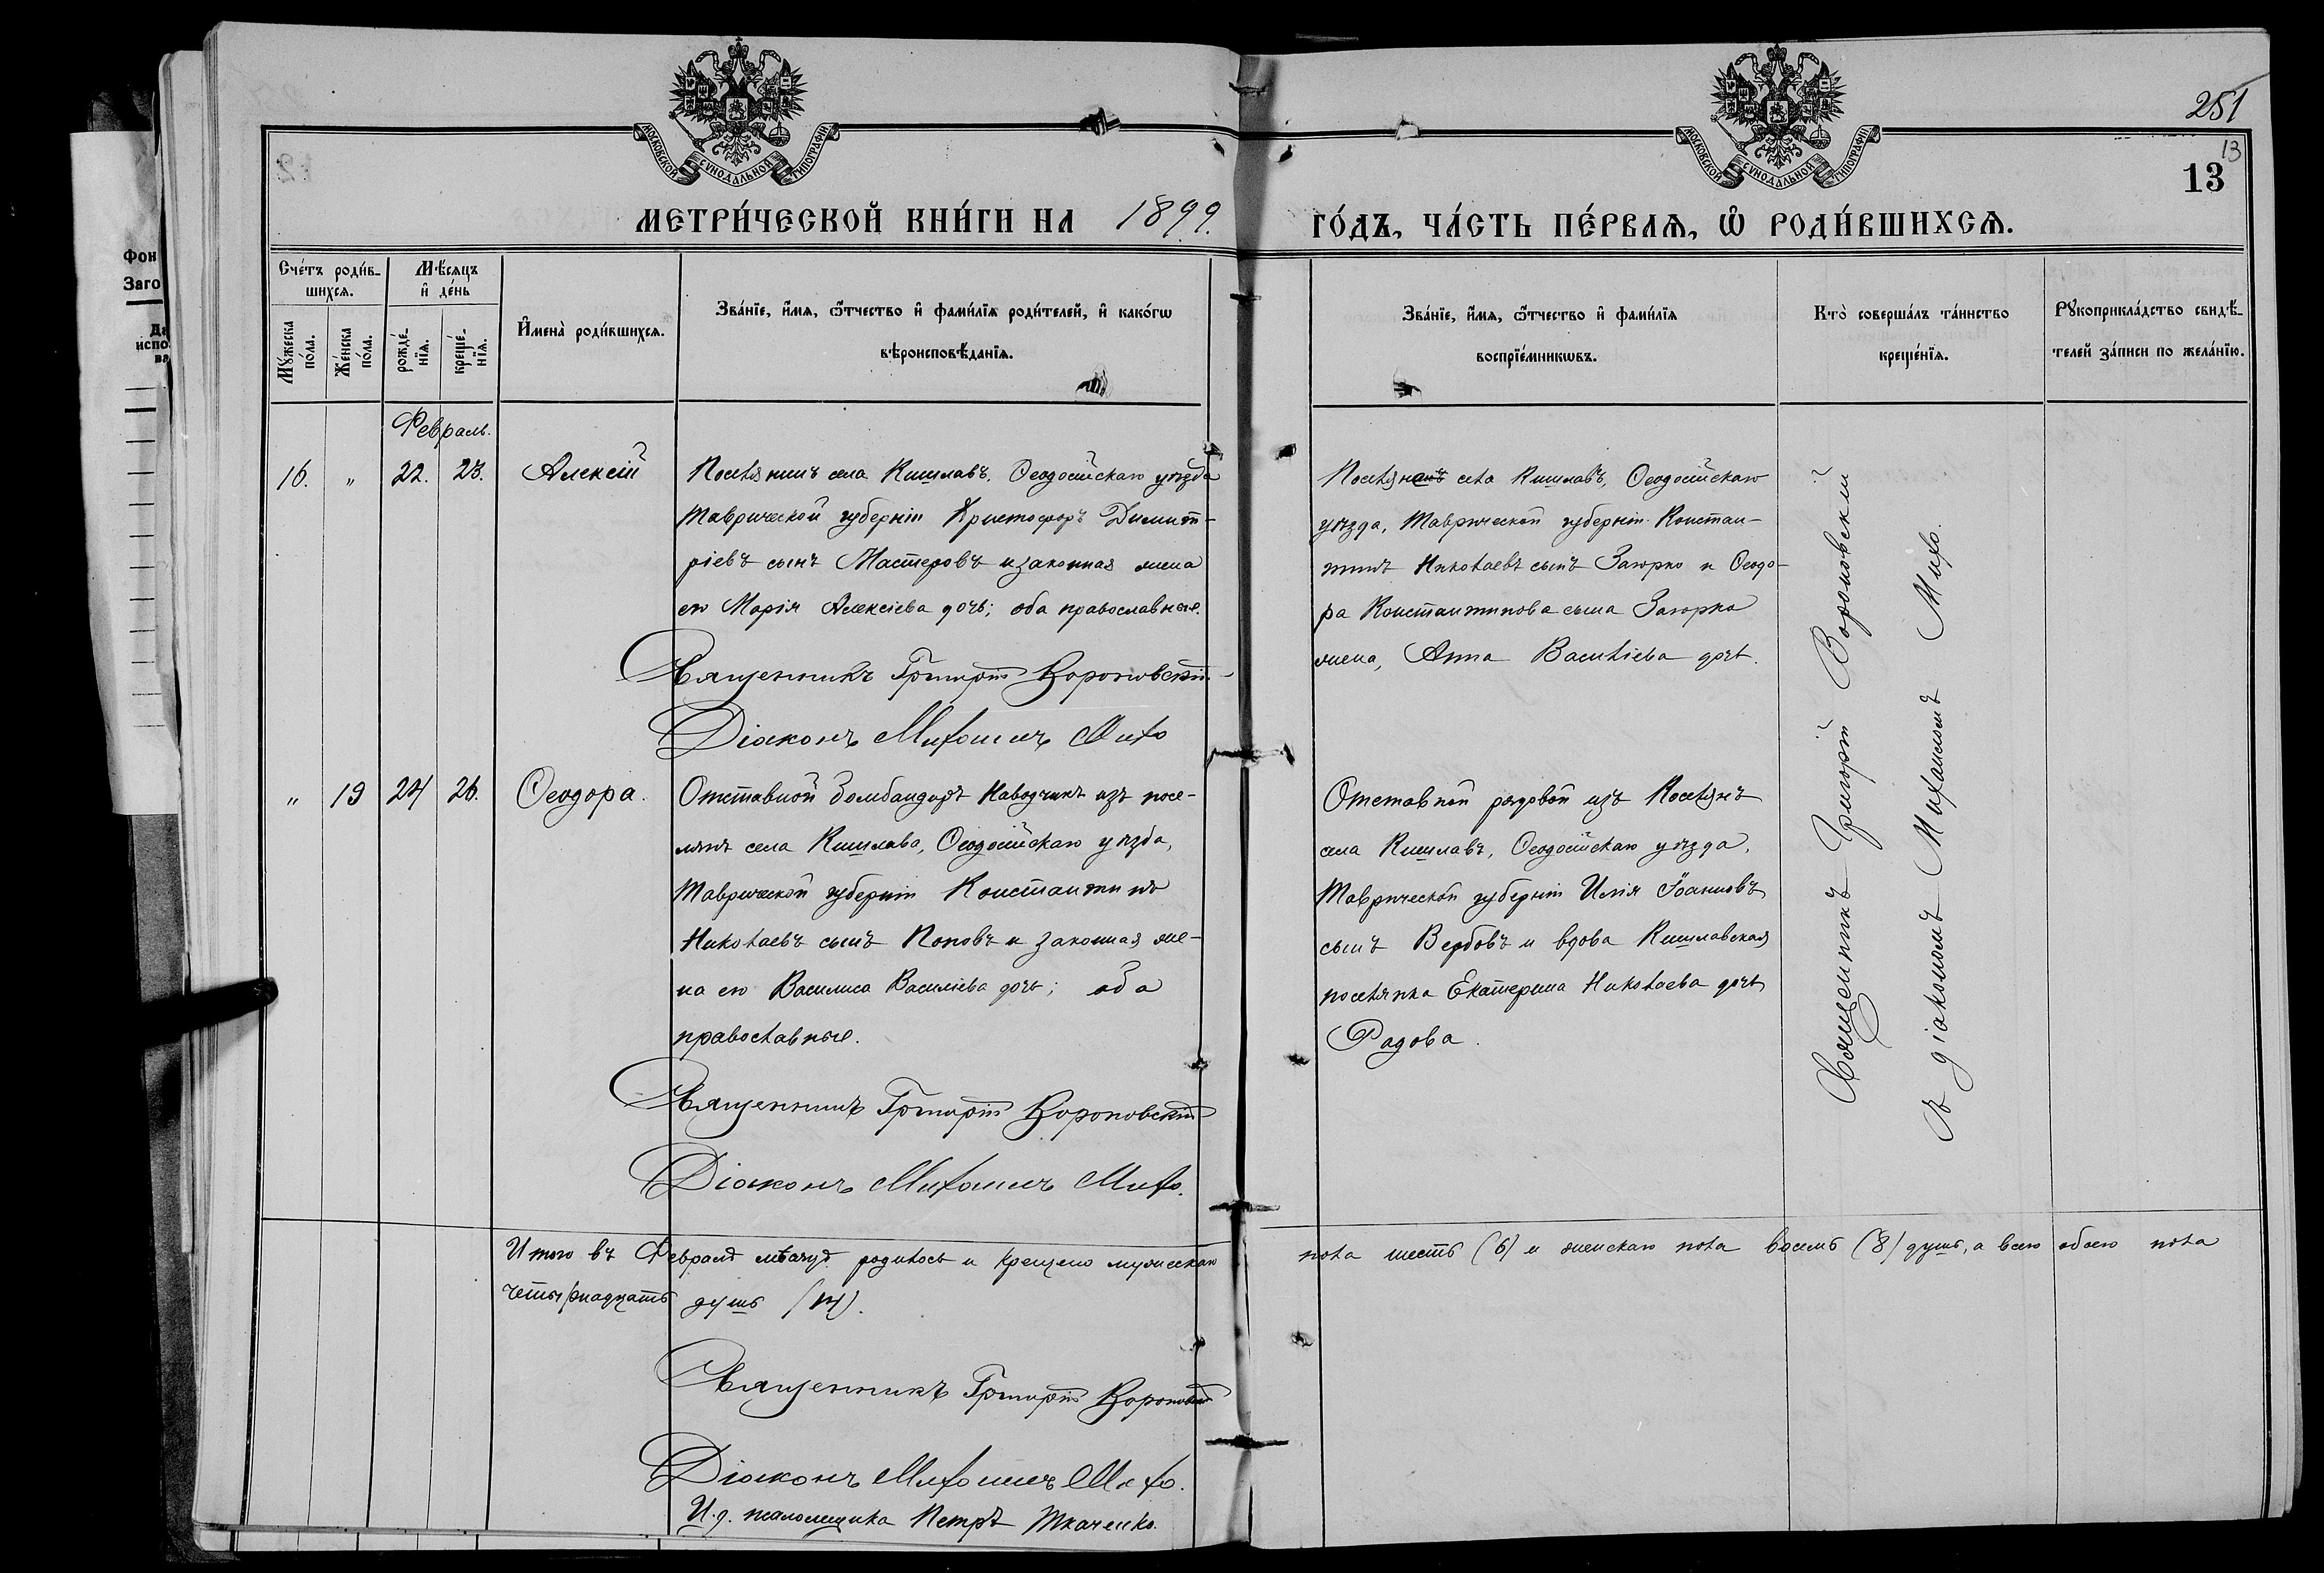 251
13
13
МОСКОВСКОЙ СѴНОДАЛЬНОЙ ТИПОГРАФІИ
МОСКОВСКОЙ СѴНОДАЛЬНОЙ ТИПОГРАФІИ
МЕТРИ́ЧЕСКОЙ КНИ́ГИ НА 1899. ГО́ДЪ, ЧА́СТЬ ПЕ́РВАѦ, Ѡ҆ РОДИ́ВШИХСѦ.
Сче́тъ роди́в-
шихсѧ.
Мꙋ́жеска по́ла.
Же́нска по́ла.
Мѣ́сѧцъ
и҆ де́нь
рожде́-
нїѧ.
креще́-
нїѧ.
И҆мена̀ роди́вшихсѧ.
Зва́нїе, и҆́мѧ, ѻ҆́тчество и҆ фами́лїѧ роди́телей, и҆ како́гѡ
вѣроисповѣ́данїѧ.
Зва́нїе, и҆́мѧ, ѻ҆́тчество и҆ фами́лїѧ
воспрїе́мникѡвъ.
Кто̀ соверша́лъ та́инство
креще́нїѧ.
Рꙋкоприкла́дство свидѣ́-
телей за́писи по жела́нїю.
Февраль.
16. " 22. 23. Алексій
Поселянинъ села Кишлавъ, Ѳеодосійскаго уѣзда
Таврической губерніи Христофоръ Димит-
ріевъ сынъ Мастеровъ и законная жена
его Марія Алексіева дочь; оба православные.
Священникъ Григорій Вороновскій.
Діаконъ Михаилъ Михо
Поселянинъ села Кишлавъ, Ѳеодосійскаго
уѣзда, Таврической губерніи Констан-
тинъ Николаевъ сынъ Загорко и Ѳеодо-
ра Константинова сына Загорка
жена, Анна Василіева дочь.
" 19 24 26. Ѳеодора.
Отставной бомбандиръ наводчикъ изъ посе-
лянъ села Кишлава, Ѳеодосійскаго уѣзда,
Таврической губерніи Константинъ
Николаевъ сынъ Поповъ и законная же-
на его Василиса Василіева дочь; оба
православные.
Священникъ Григорій Вороновскій
Діаконъ Михаилъ Михо.
Отставной рядовой изъ поселянъ
села Кишлавъ, Ѳеодосійскаго уѣзда,
Таврической губерніи Илія Іоанновъ
сынъ Вербовъ и вдова Кишлавская
поселянка Екатерина Николаева дочь
Радова.
Священникъ Григорій Вороновскій
съ діакономъ Михаиломъ Михо.
Итого въ Февралѣ мѣсяцѣ родилось и крещено мужескаго пола шесть (6) и женскаго пола восемь (8) душъ, а всего обоего пола
четырнадцать душъ (14).
Священникъ Григорій Вороновскій
Діаконъ Михаилъ Михо.
И.д. псаломщика Петръ Ткаченко.
Фон
Заго
Да
испо
ва